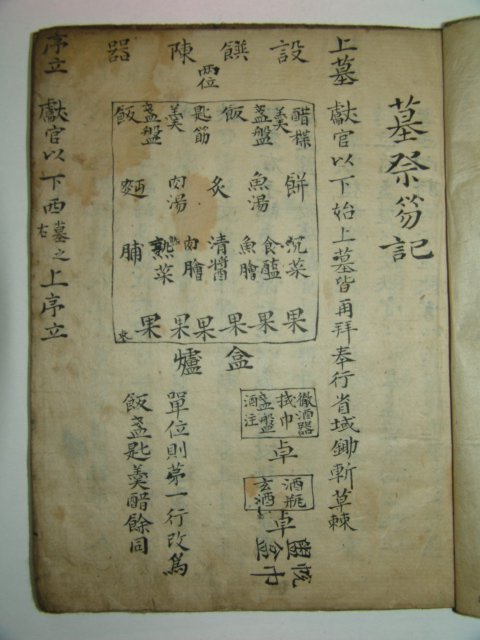 墓祭笏記
上墓 獻官以下始上墓皆再拜奉行省域鋤斬草棘
設饌陳器
兩位
醋楪 羹 盞盤 飯 匙筯 羹 盞盤 飯
餅 魚湯 炙 肉湯 麵
沉菜 食醢 魚膾 清醬 肉膾 熟菜 脯
果 果 果 果 果 果
東
盒 爐
徹酒器 拭巾 盞盤 酒注
卓
酒瓶 玄酒
卓
盥 帨巾
單位則第一行改爲
飯盞匙羹醋餘同
序立 獻官以下西墓之右上序立